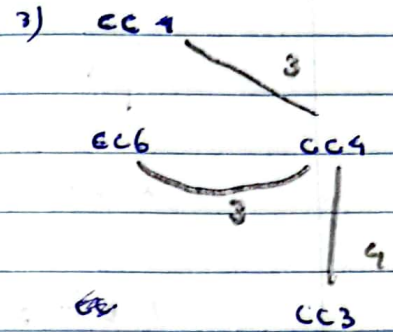 3) CC 1
3
CC6 CC4
3
4
CC3